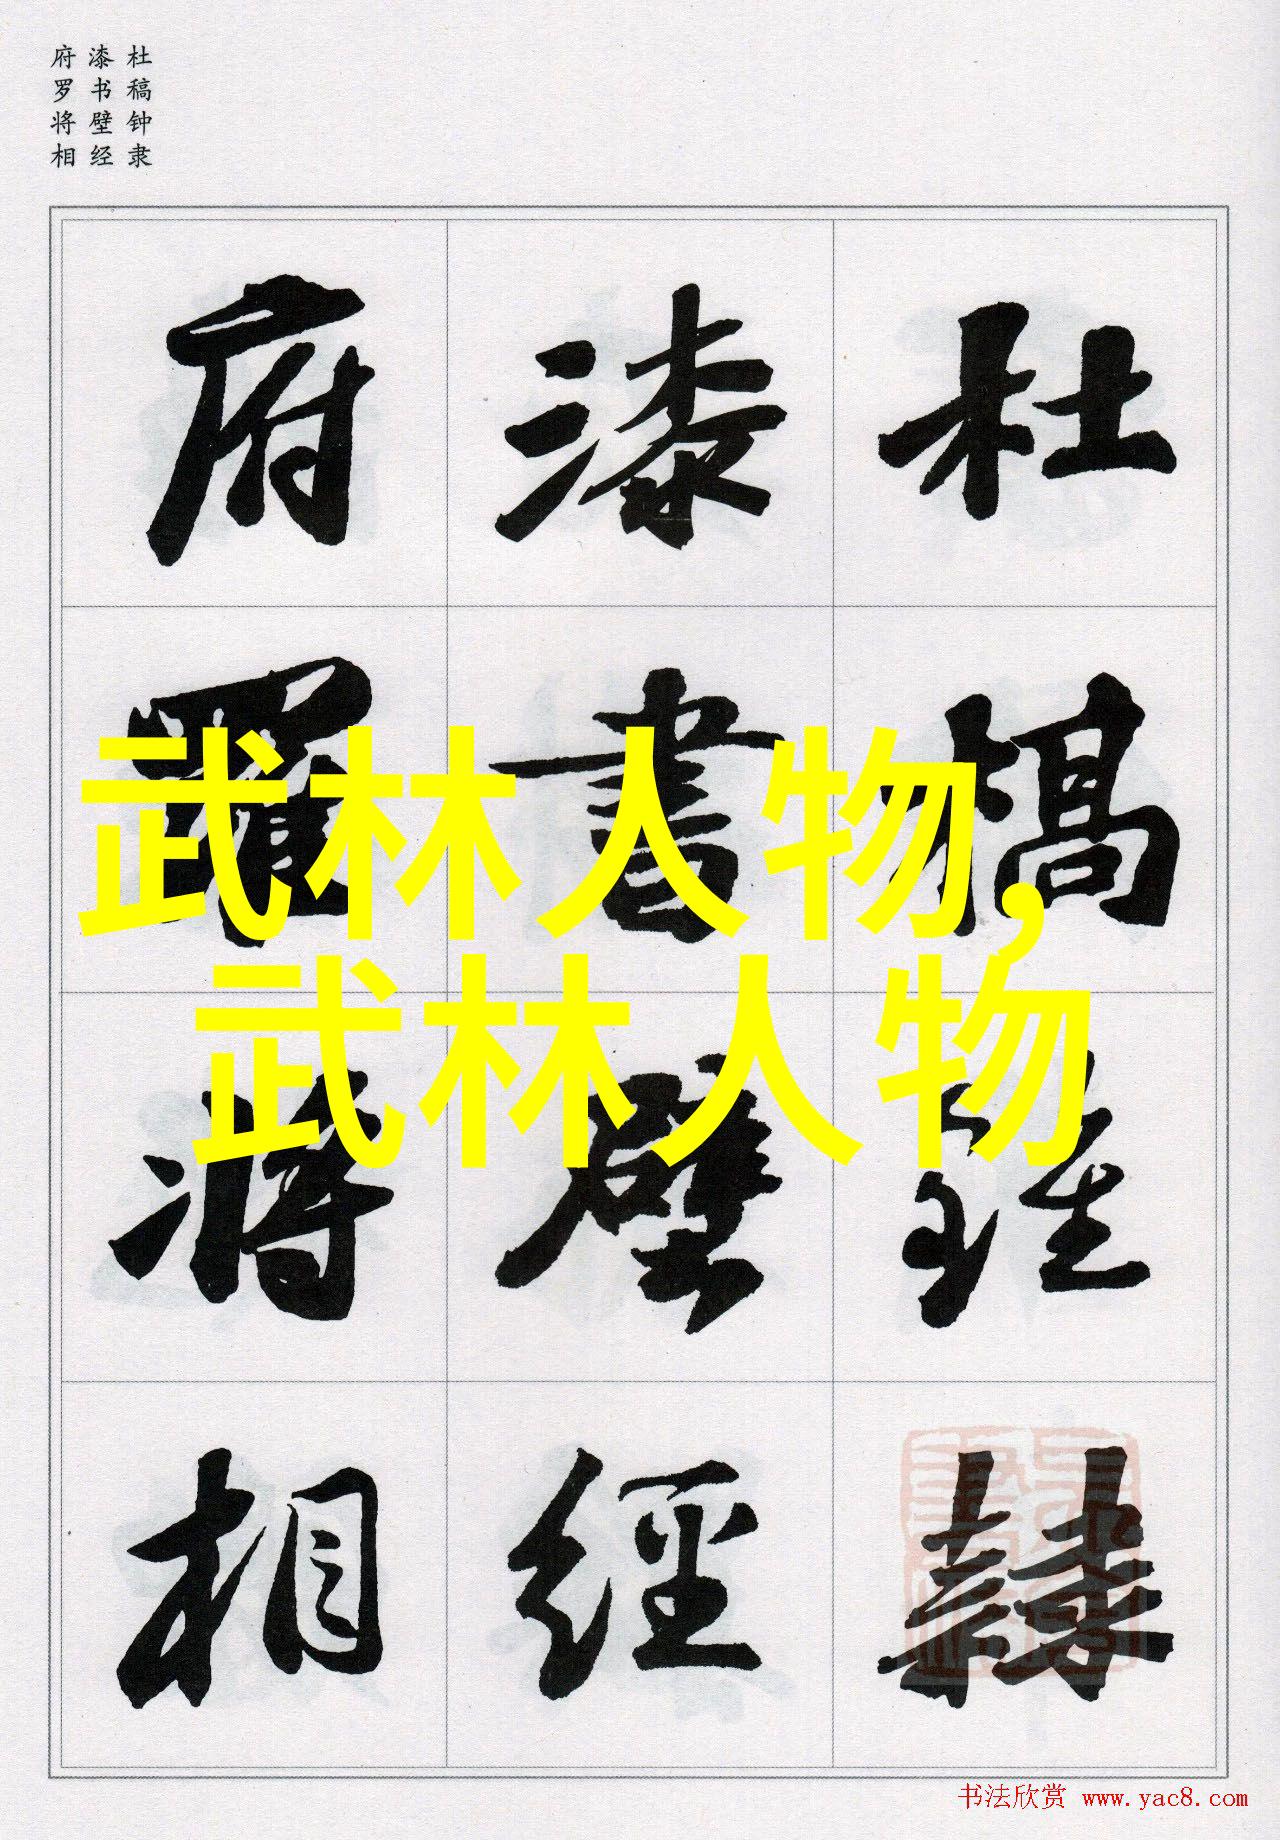 杜稿钟隶
漆书壁经
府罗将相
杜稿鍾隸
漆書壁經
府羅将相
武林人物,
武林人物
书法欣赏 www.yac8.com